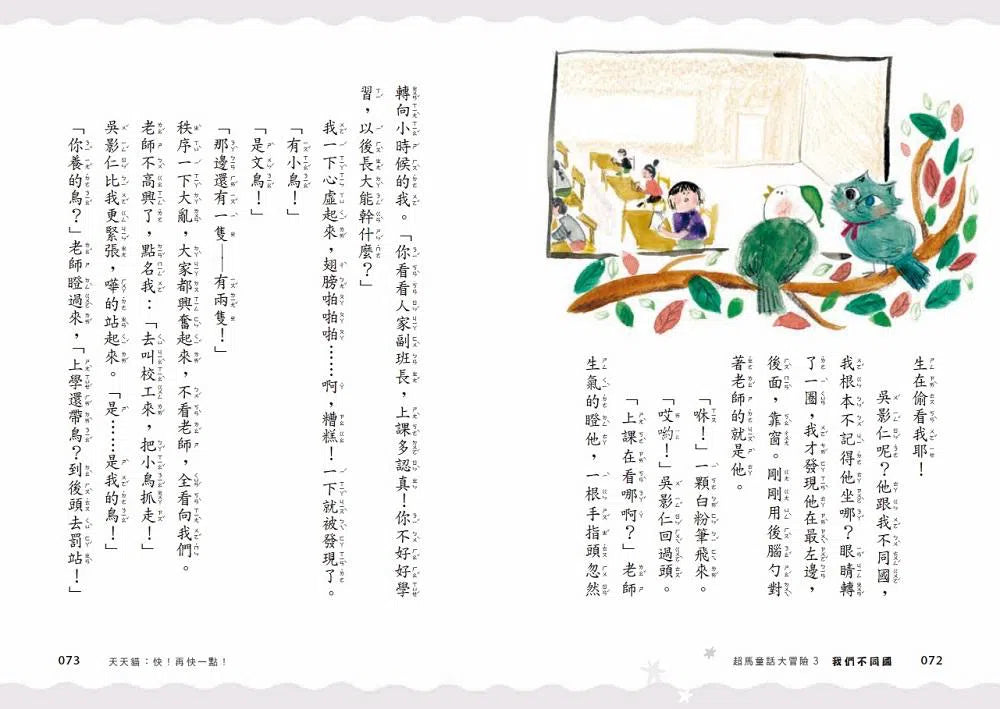 生在偷看我耶！
吳影仁呢？他跟我不同國，
我根本不記得他坐哪？眼睛轉
了一圈，我才發現他在最左邊，
後面，靠窗。剛剛用後腦勺對
著老師的就是他。
「咻！」一顆白粉筆飛來。
「哎喲！」吳影仁回過頭。
「上課在看哪啊？」老師
生氣的瞪他，一根手指頭忽然
超馬童話大冒險 3 我們不同國 072
轉向小時候的我。「你看看人家副班長，上課多認真！你不好好學
習，以後長大能幹什麼？」
我一下心虛起來，翅膀啪啪啪……啊，糟糕！一下就被發現了。
「有小鳥！」
「是文鳥！」
「那邊還有一隻——有兩隻！」
秩序一下大亂，大家都興奮起來，不看老師，全看向我們。
老師不高興了，點名我：「去叫校工來，把小鳥抓走！」
吳影仁比我更緊張，嘩的站起來。「是……是我的鳥！」
「你養的鳥？」老師瞪過來，「上學還帶鳥？到後頭去罰站！」
073 天天貓：快！再快一點！